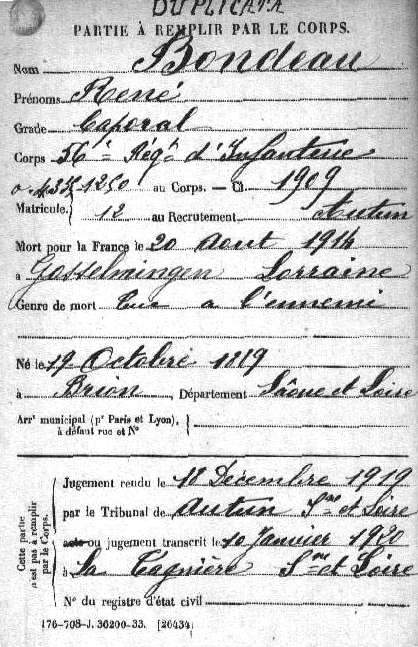 DUPLICATA
PARTIE À REMPLIR PAR LE CORPS.
Nom Bondeau
Prénoms René
Grade Caporal
Corps 56e Régt d'Infanterie
1250 au Corps. — Cl. 1909
Matricule. 12 au Recrutement Autun
Mort pour la France le 20 Aout 1914
à Gosselmingen Lorraine
Genre de mort Tué a l'ennemi
Né le 19 Octobre 1889
à Brion Département Saône et Loire
Arrt municipal (pr Paris et Lyon),
à défaut rue et No
Cette partie
n'est pas à remplir
par le Corps.
Jugement rendu le 18 Décembre 1919
par le Tribunal de Autun Sne et Loire
acte ou jugement transcrit le 10 Janvier 1920
à La Tagnière Sne et Loire
No du registre d'état civil
176-708-J. 30200-33. [26434]